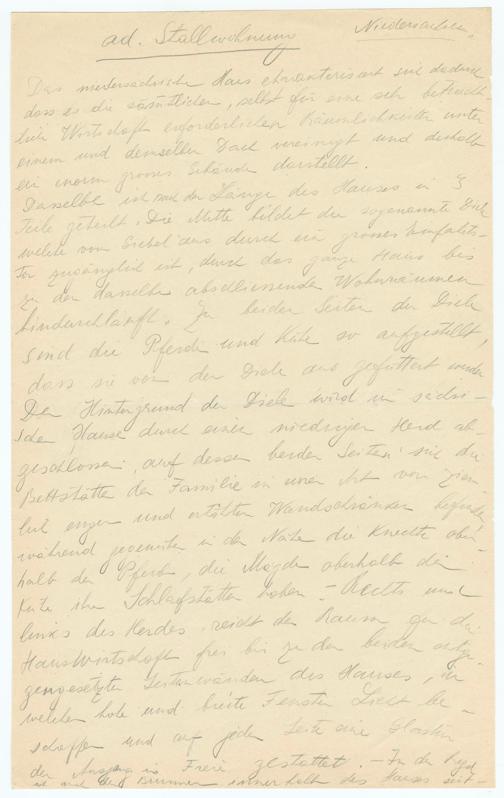 ad. Stallwohnung
Niedersachsen.
Das niedersächsische Haus charakterisiert sich dadurch
dass es die sämtlichen, selbst für eine sehr beträcht-
liche Wirtschaft erforderlichen Räumlichkeiten unter
einem und demselben Dach vereinigt und deshalb
ein enorm grosses Gebäude darstellt.
Dasselbe ist nach der Länge des Hauses in 3
Teile geteilt. Die Mitte bildet die sogenannte Diele
welche vom Giebel aus durch ein grosses Einfahrts-
Tor zugänglich ist, durch das ganze Haus bis
zu den dasselbe abschliessenden Wohnräumen
hindurchläuft. Zu beiden Seiten der Diele
sind die Pferde und Kühe so aufgestellt,
dass sie von der Diele aus gefüttert werden
Der Hintergrund der Diele wird im sächsi-
schen Hause durch einen niedrigen Herd ab-
geschlossen, auf dessen beiden Seiten sich die
Bettstätten der Familie in einer Art von ziem-
lich engen und erhöhten Wandschränken befinden
während in der Nähe die Knechte ober-
halb der Pferde, die Mägde oberhalb der
Kühe ihre Schlafstätten haben - Rechts und
links des Herdes reicht der Raum für die
Hauswirtschaft frei bis zu den beiden entge-
gengesetzten Seitenwänden des Hauses, in
welchen hohe und breite Fenster Licht be-
schaffen und auf jeder Seite eine Glastür
den Ausgang ins Freie gestattet. - In der Regel
ist auch der Brunnen innerhalb des Hauses